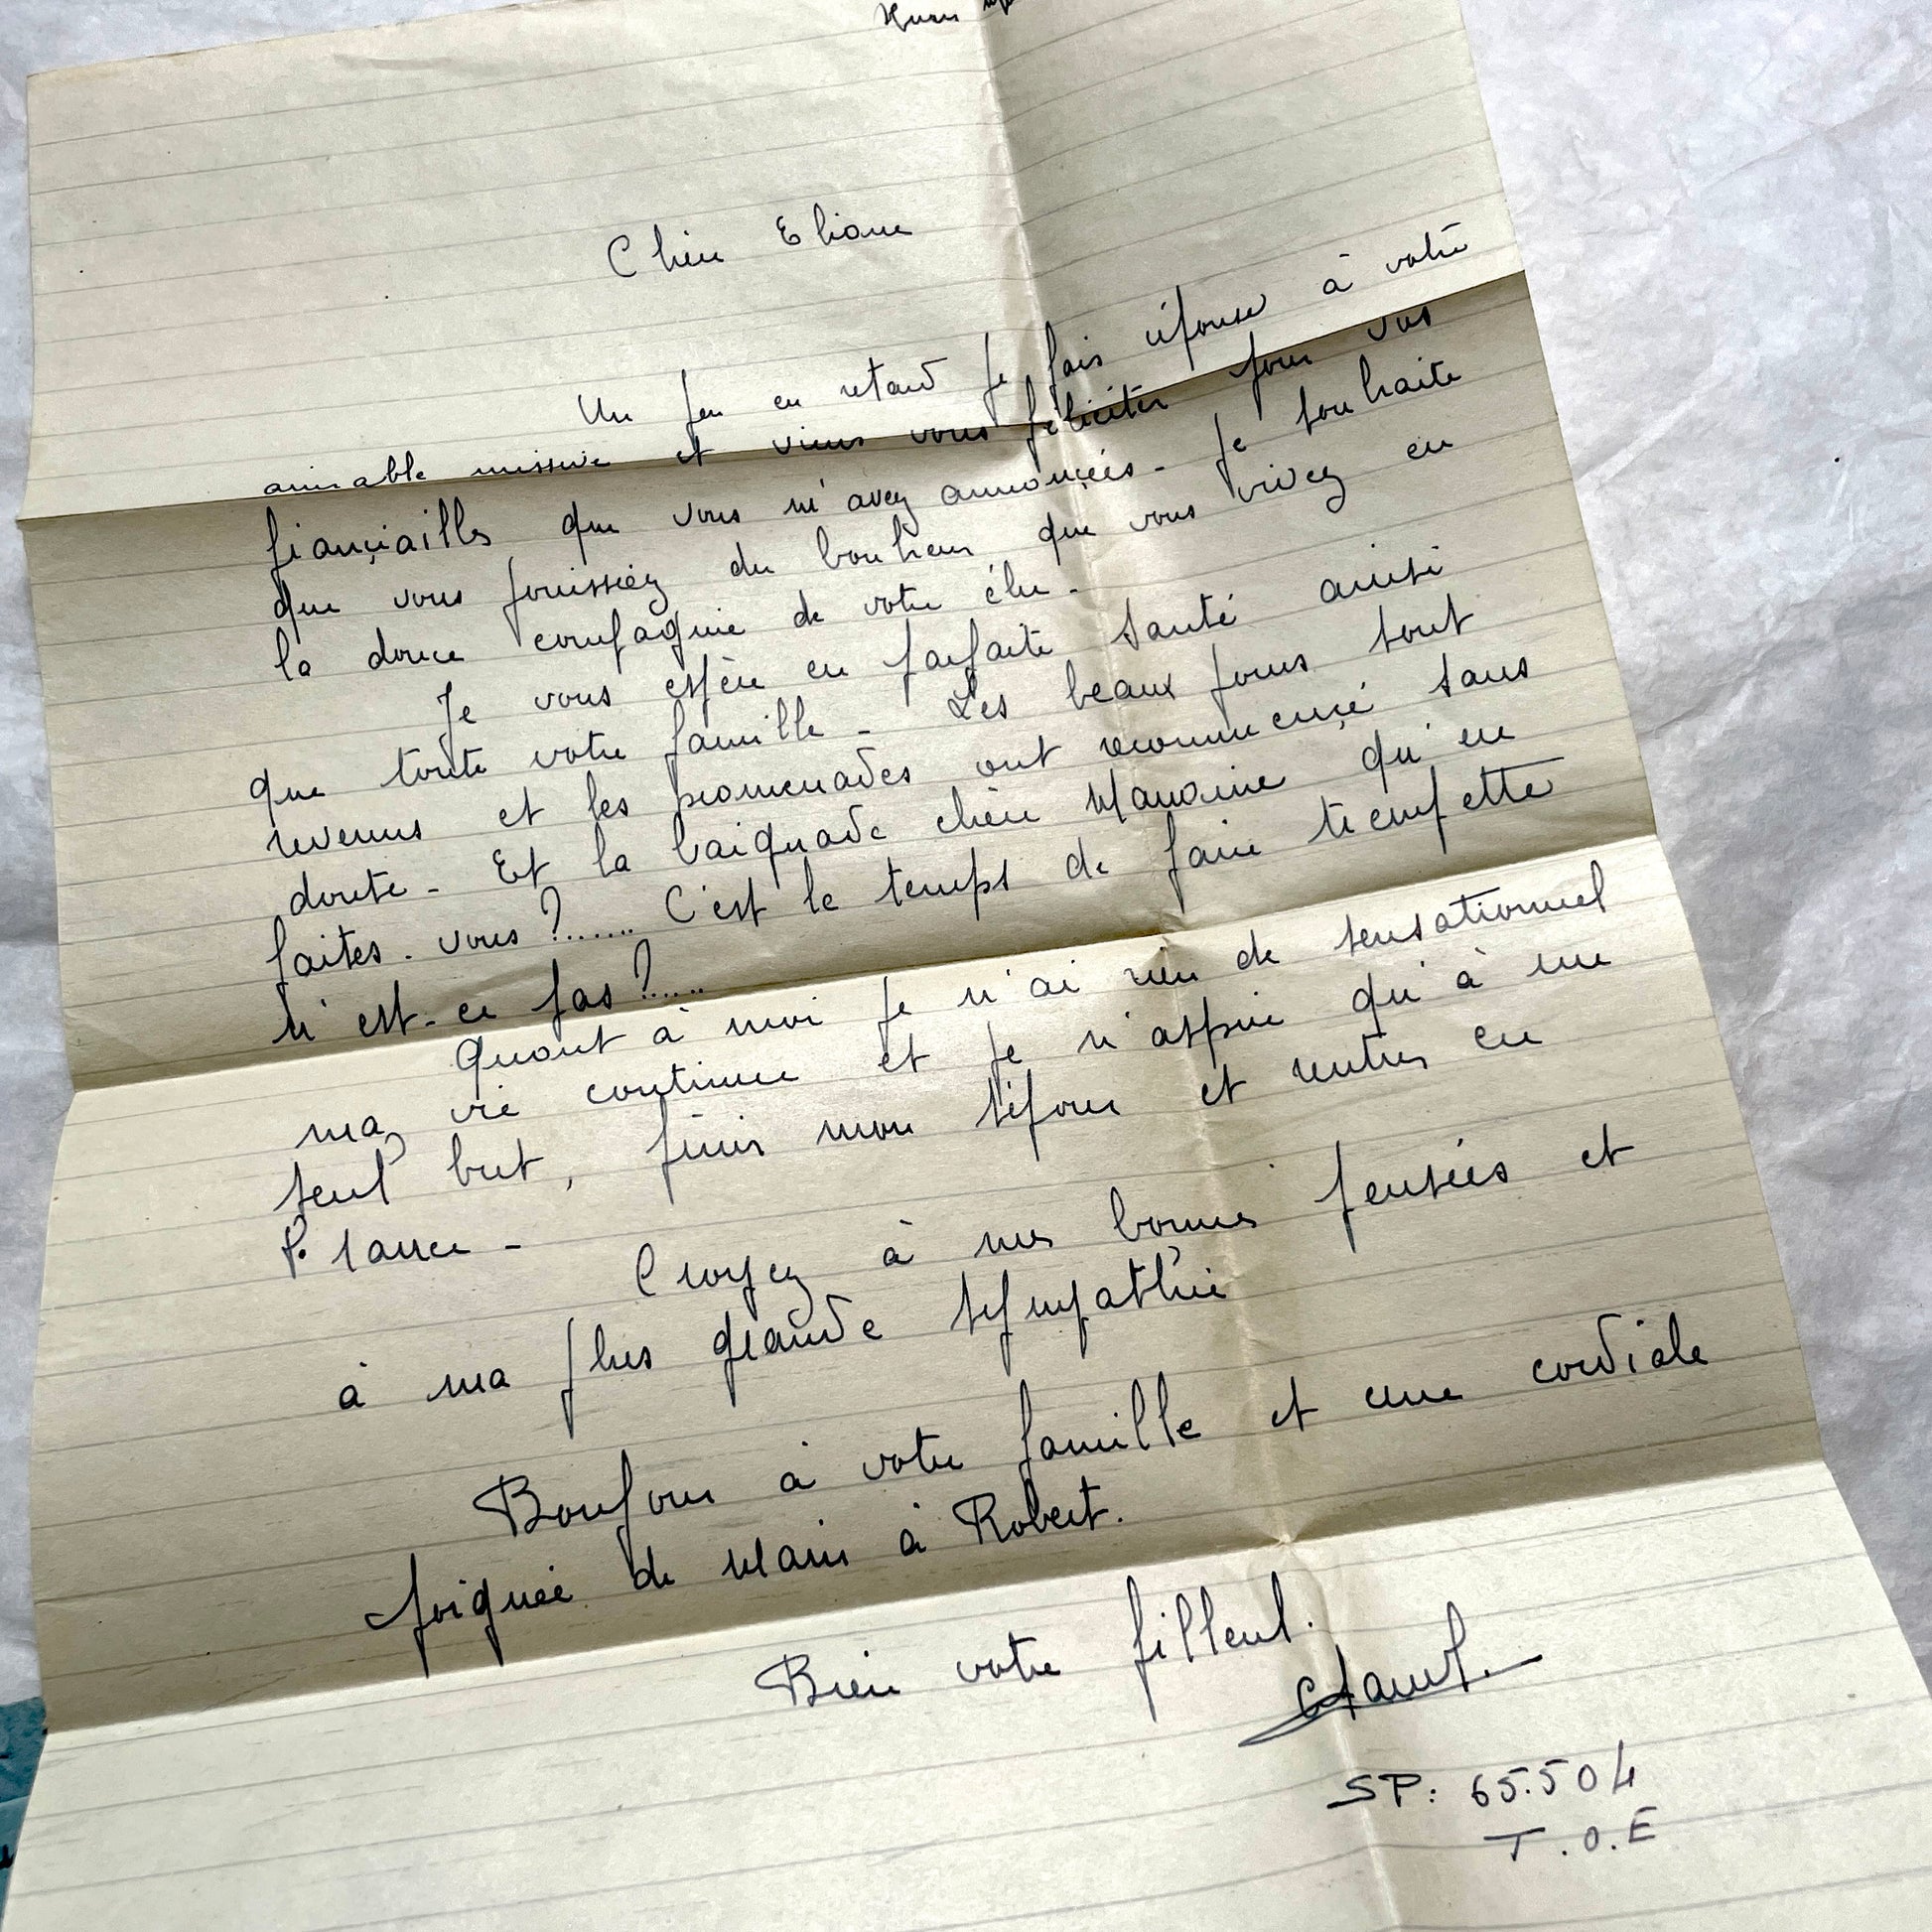 Chère Eliane
Un peu en retard je fais réponse à votre
aimable missive et viens vous féliciter pour vos
fiançiailles que vous m'avez annonçées - je souhaite
que vous jouissiez du bonheur que vous vivez en
la douce compagnie de votre élu -
Je vous espère en parfaite santé ainsi
que toute votre famille - Les beaux jours sont
revenus et les promenades ont recommençé sans
doute - Et la baignade chère Marraine qu'en
faites-vous ?...... C'est le temps de faire trempette
n'est-ce pas ?.....
Quant à moi je n'ai rien de sensationnel
ma vie continue et je n'aspire qu'à un
seul but, finir mon séjour et rentrer en
France -
Croyez à mes bonnes pensées et
à ma plus grande sympathie
Bonjour à votre famille et une cordiale
poignée de Main à Robert.
Bien votre filleul.
SP: 65.504
T.O.E